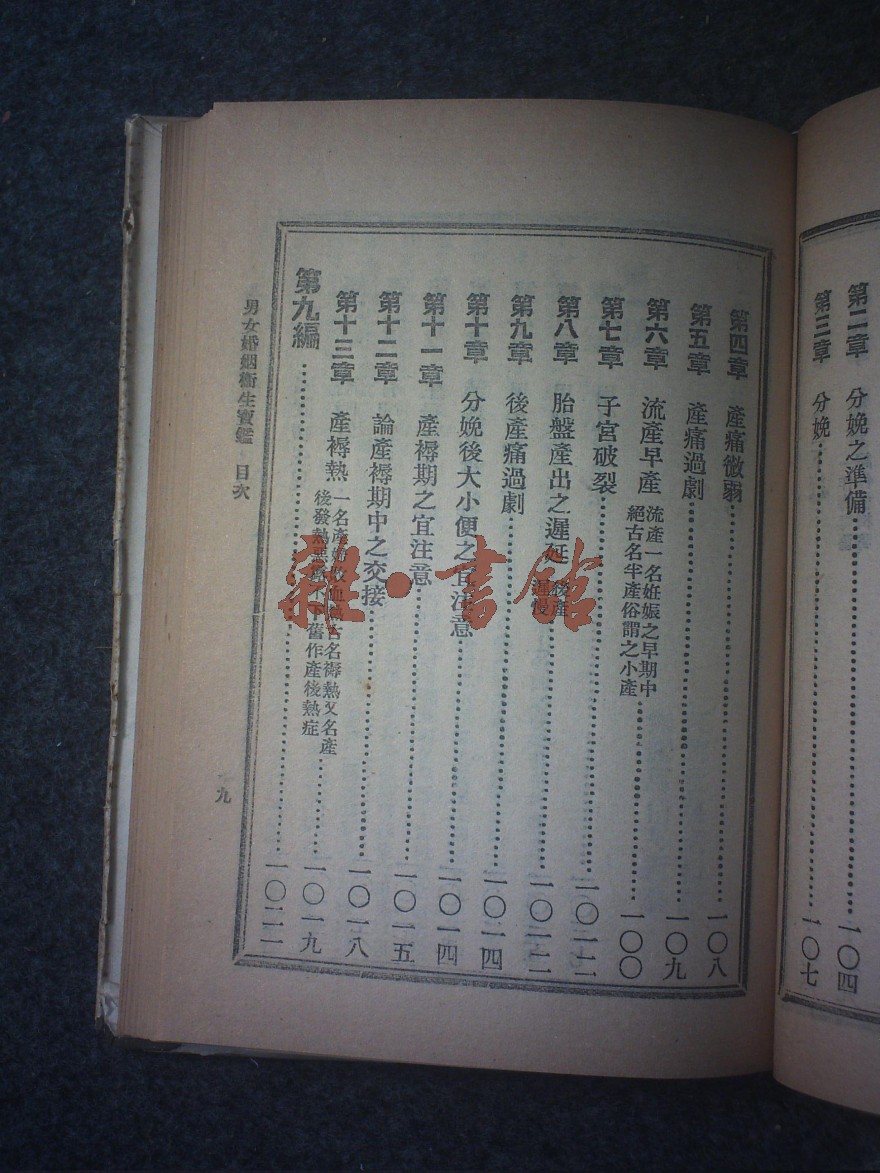 第二章 分娩之準備 一〇四
第三章 分娩 一〇七
第四章 產痛微弱 一〇八
第五章 產痛過劇 一〇九
第六章 流產早產 流產一名妊娠之早期中絕古名半產俗謂之小產 一〇〇
第七章 子宮破裂 一〇一二
第八章 胎盤產出之遲延 後產遲慢 一〇一二
第九章 後產痛過劇 一〇一四
第十章 分娩後大小便之宜注意 一〇一四
第十一章 產褥期之宜注意 一〇一五
第十二章 論產褥期中之交接 一〇一八
第十三章 產褥熱 一名產婦敗血 古名褥熱又名產後發熱 下舊作產後熱症 一〇一九
第九編 一〇二一
男女婚姻衞生寶鑑 目次
九
雜·書館